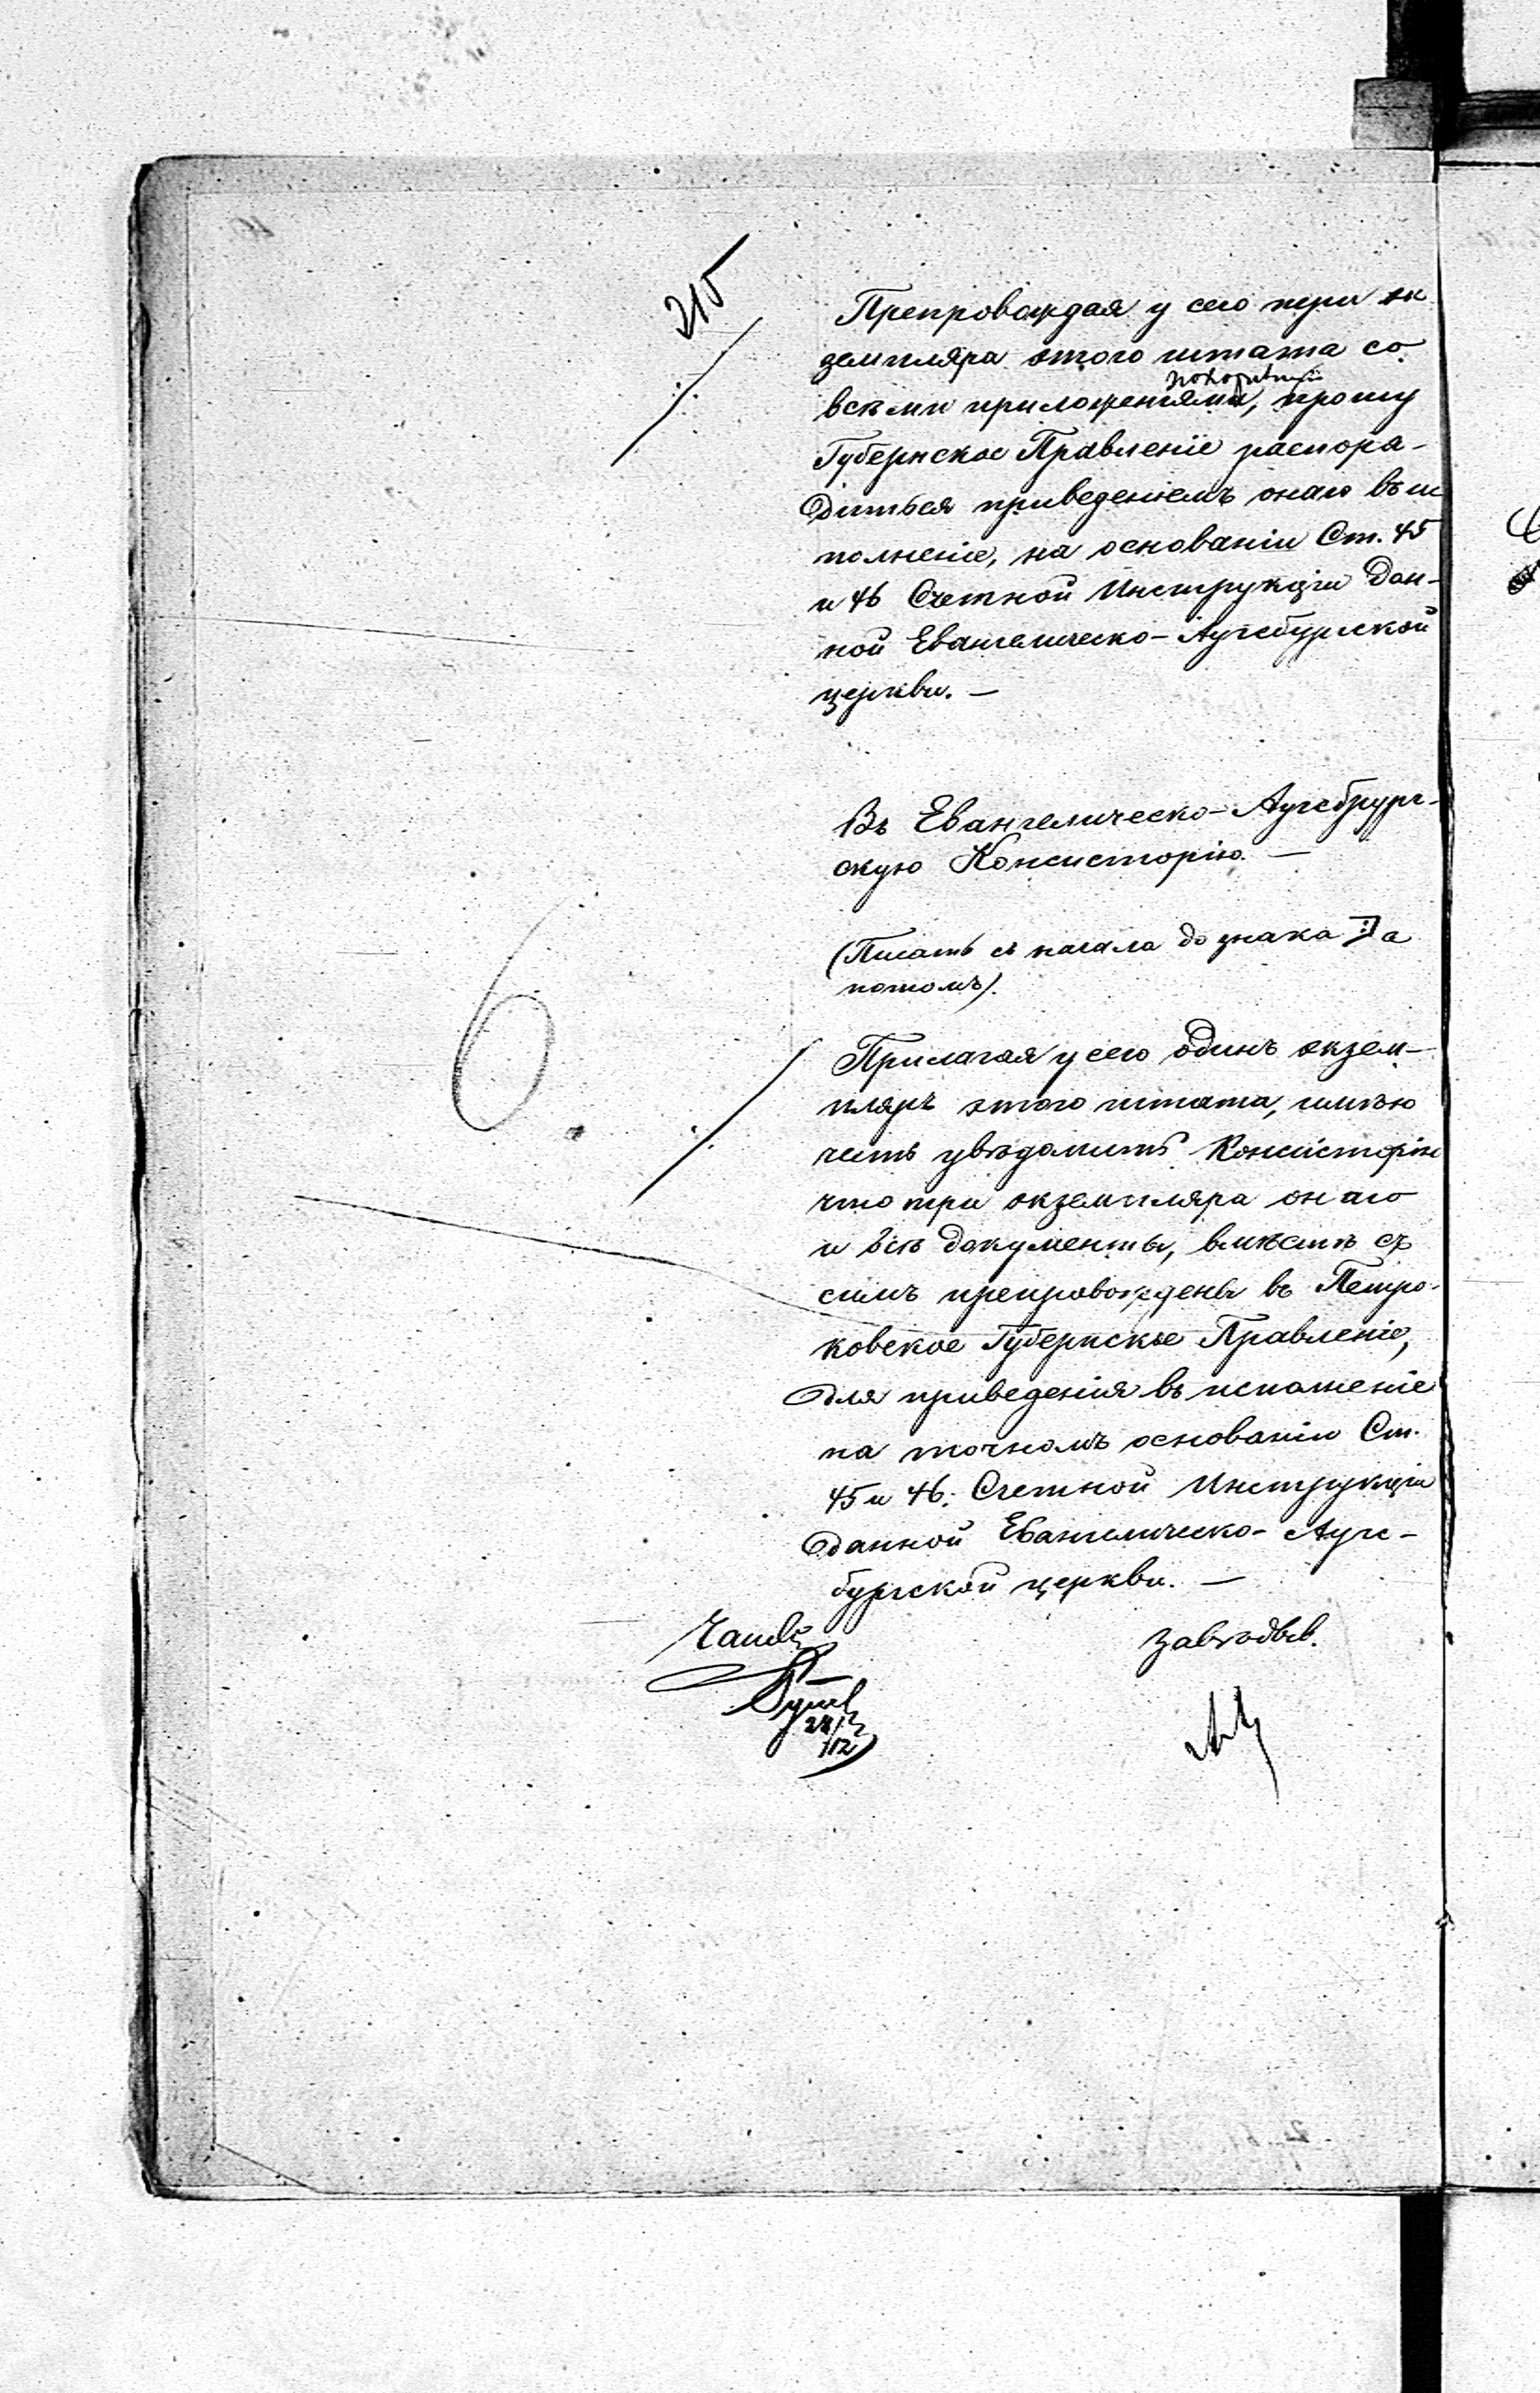 215
Препровождая у сего три эк
земпляра этого штата со
покорнѣйше
всѣми приложеніями, прошу
Губернское Правленіе распоря-
диться приведеніемъ онаго въ ис
полненіе, на основаніи Ст. 45
и 46 Счетной Инструкціи дан-
ной Евангелическо-Аугсбургской
церкви. —
Въ Евангелическо-Аугсбург-
скую Консисторію. —
(Писать съ начала до знака :/ а
потомъ).
Прилагая у сего одинъ экзем-
пляръ этого штата, имѣю
честь увѣдомить Консисторію
что три экземпляра онаго
и всѣ документы, вмѣстѣ съ
симъ препровождены въ Петро-
ковское Губернское Правленіе,
для приведенія въ исполненіе
на точномъ основаніи Ст.
45 и 46. Счетной Инструкціи
данной Евангелическо-Аугс-
бургской церкви. —
6